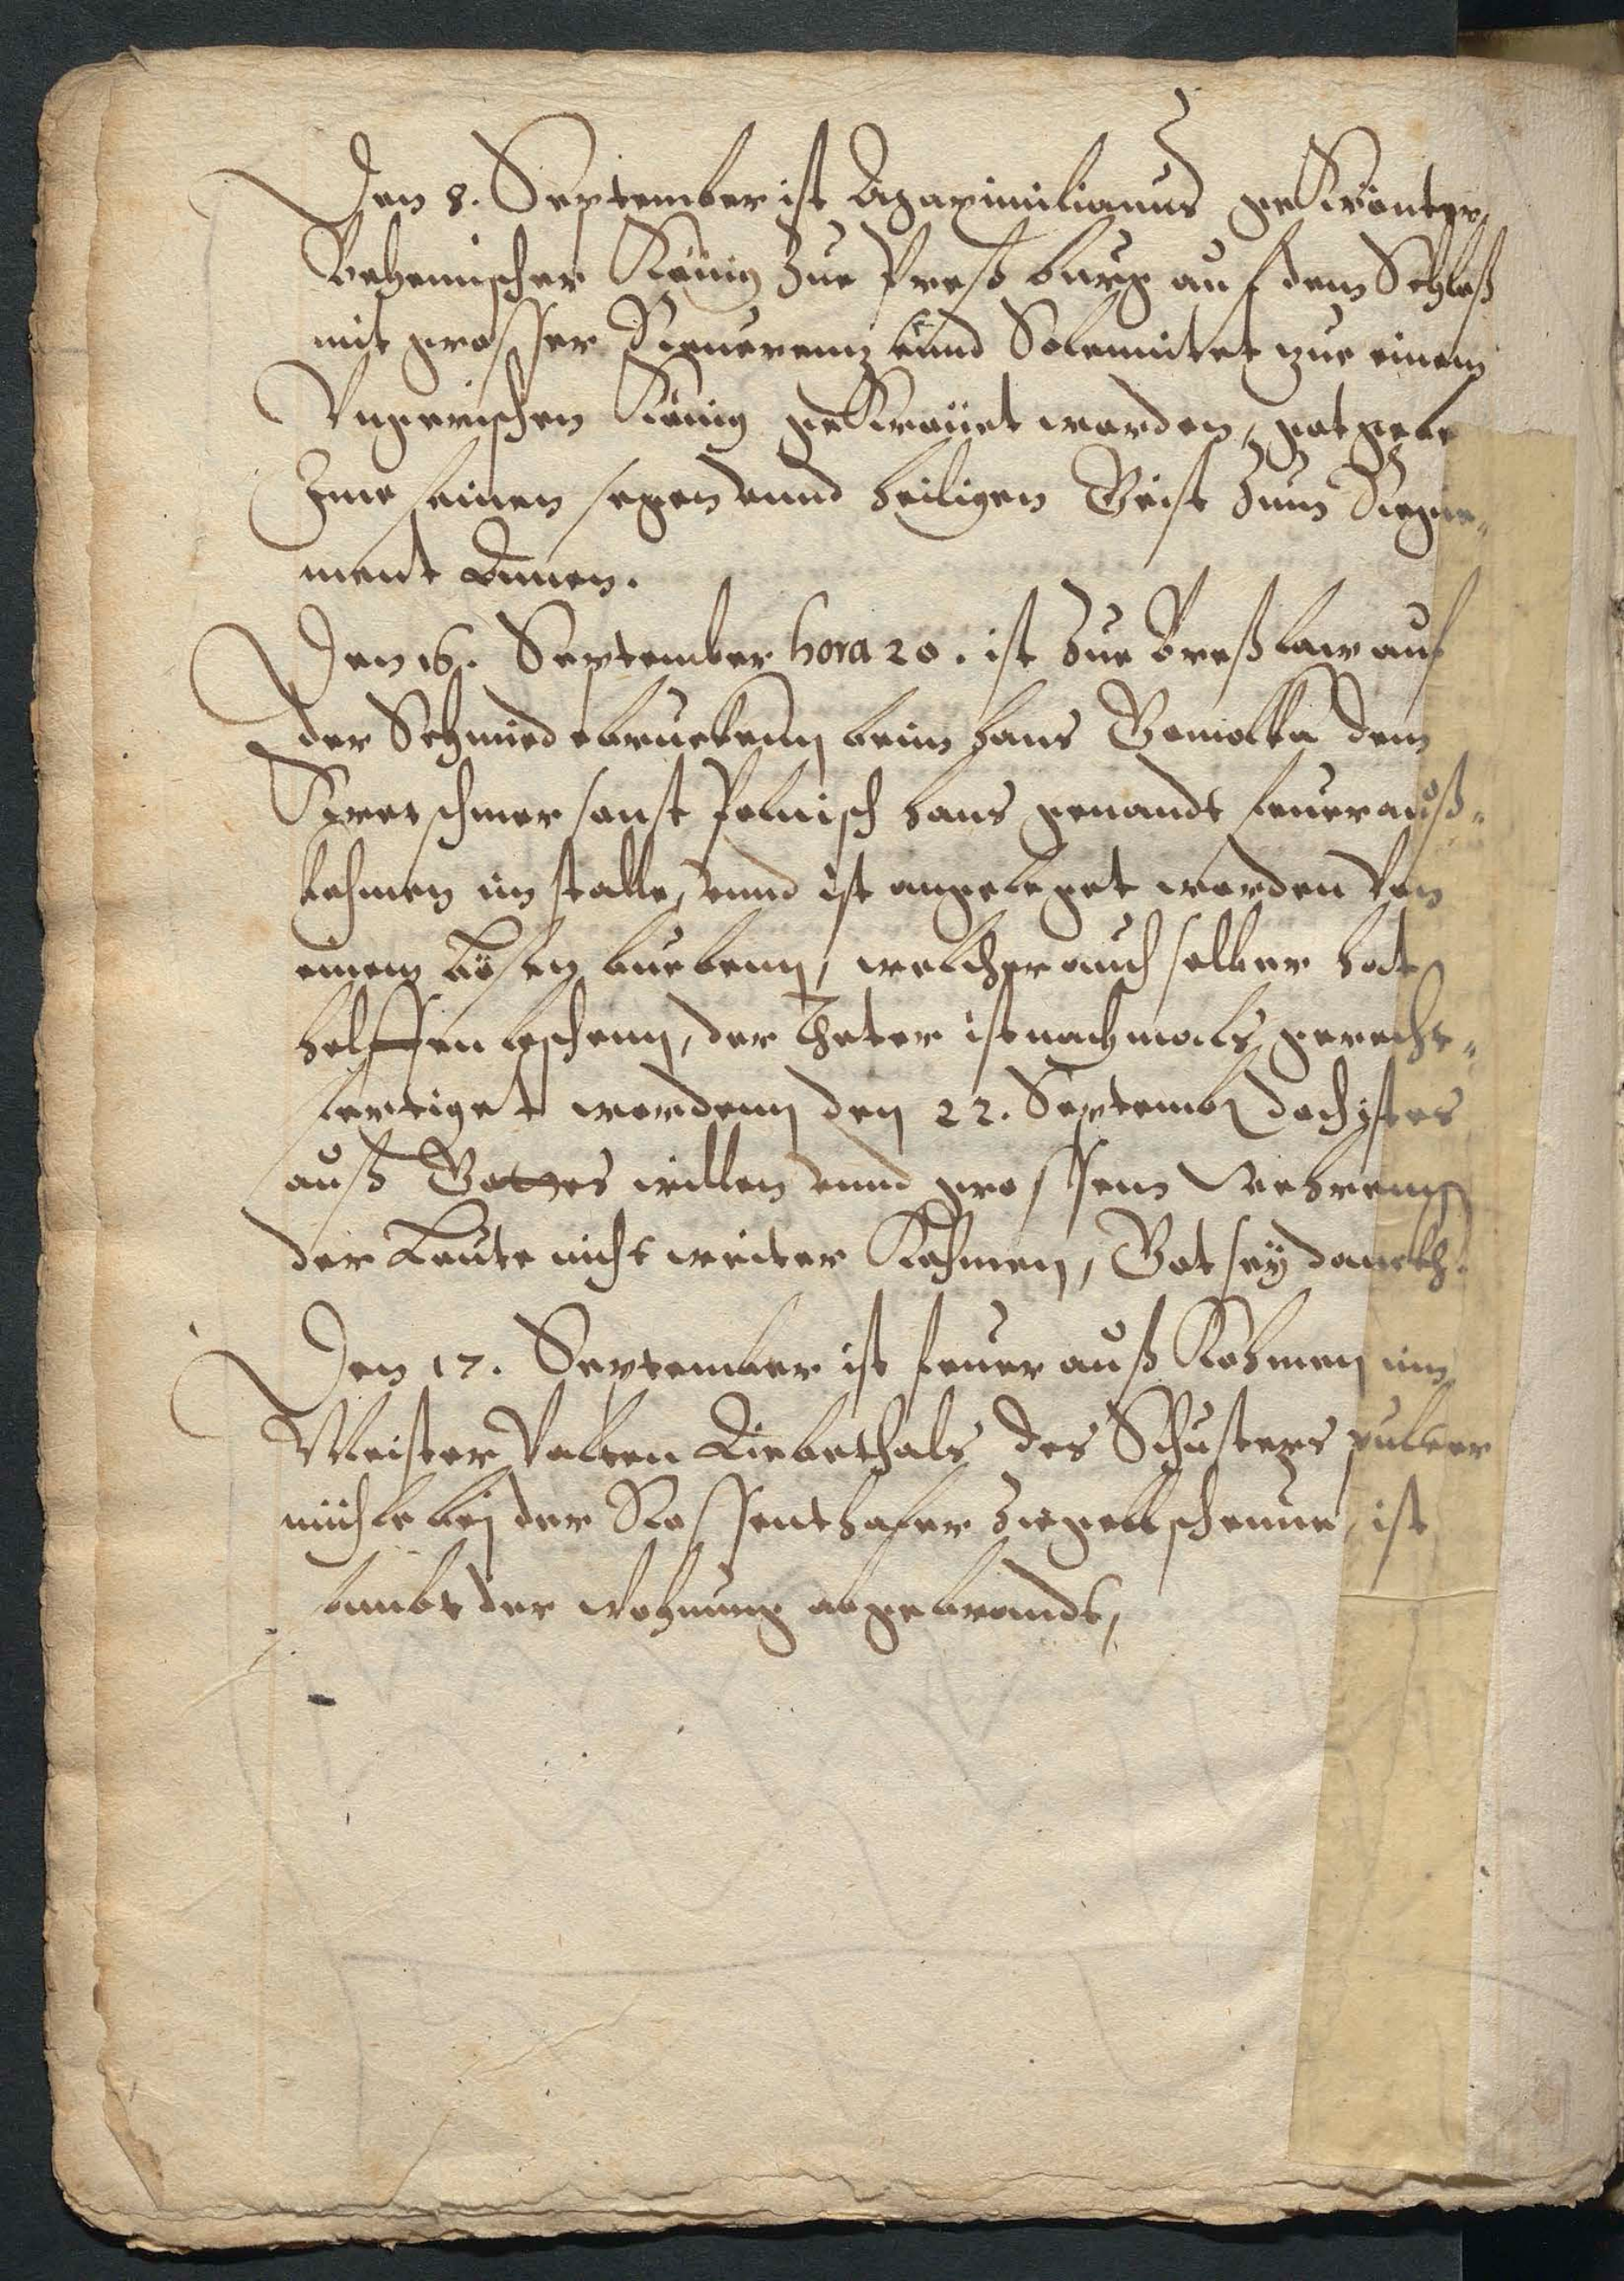 Den 8. September ist Maximilianus gekrönter
Behemischer König zue Presburg auf dem Schloß
mit grosser Reuerenz vnnd Solemnitet zue einem
Vngerischen König gekrönet worden, got gebe
Ihme seinen segen vnnd heiligen Geist zum Regie-
ment Amen.
Den 16. September hora 20. ist zue Breßlaw auf
der Schmiedebruckenn beim Hans Gomolka dem
Kretschmer sonst Polnisch Hans genandt feuer auß-
kohmen im stalle, vnnd ist angeleget worden von
einem bösen buebenn, welcher auch selber hat
helffen leschenn, der Theter ist nachmals gerecht-
fertiget wordenn den 22. Septemb. doch ist es
auß Gottes willen vnnd grossem wehrenn
der Leute nicht weiter kohmen, Got sey danckh.
Den 17. September ist feuer auß kohmen inn
Meister Valten Liebethals des Schusters puluer
mühle bej der Rossenthaler Ziegellscheune, ist
sambt der wohnung abgebrandt,